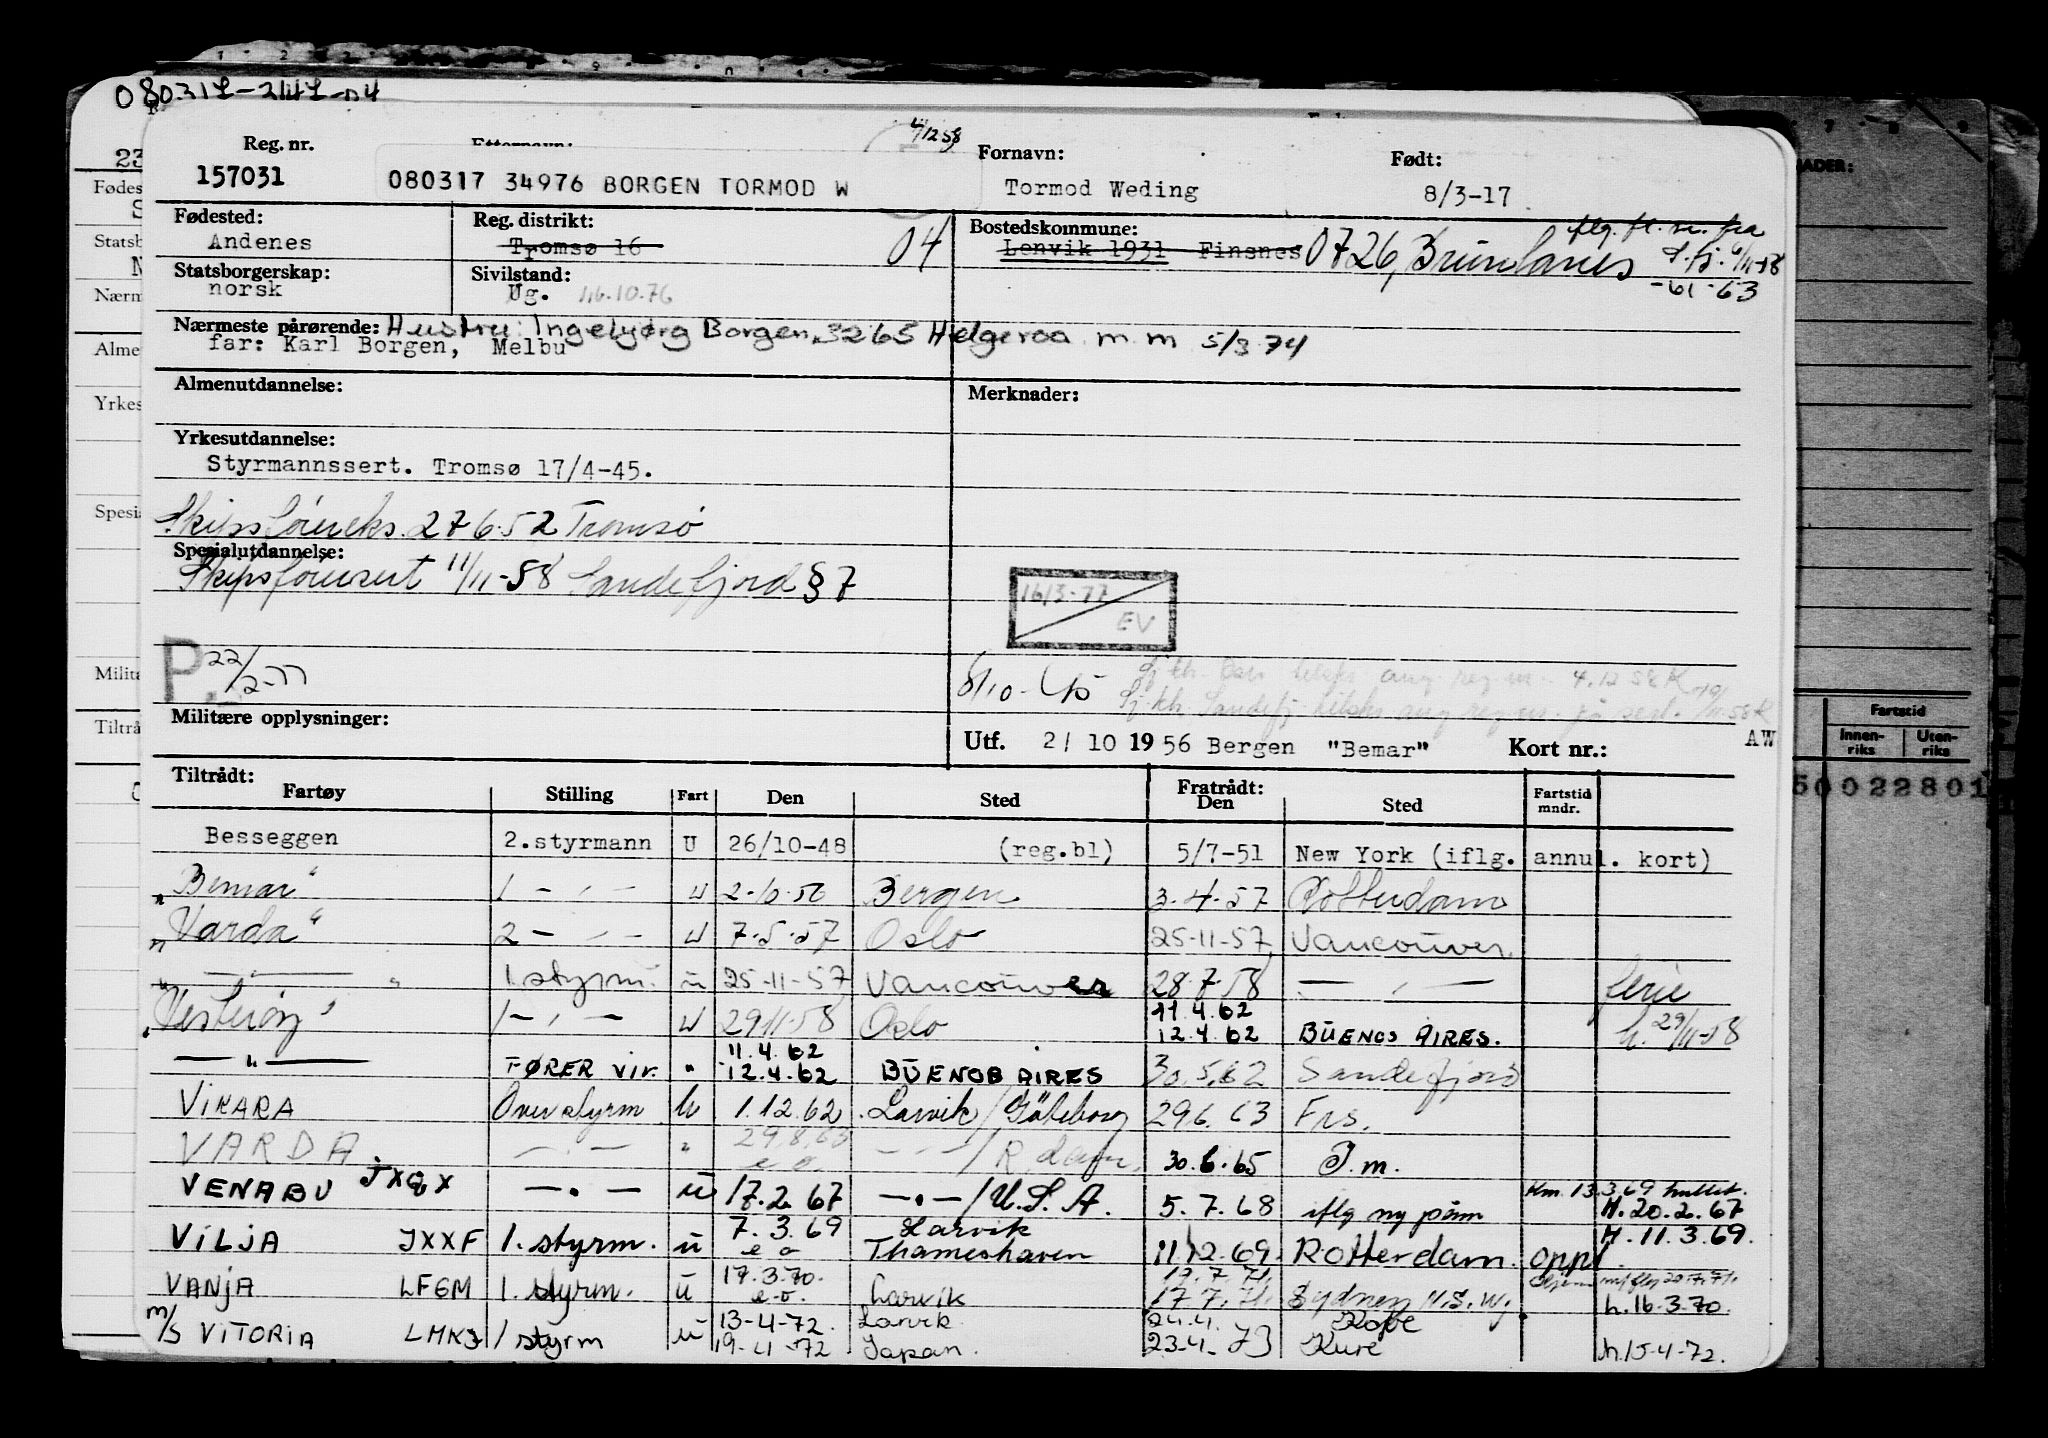 Reg. nr.
4/12 58
Fornavn:
Født:
157031
080317 34976 BORGEN TORMOD W
Tormod Weding
8/3-17
Fødested:
Reg. distrikt:
Bostedskommune:
Andenes
Tromsø 16
04
Lenvik 1931 Finsnes 0726, Brunlanes
Statsborgerskap:
Sivilstand:
norsk
Ug. 16.10.76
-61-63
Nærmeste pårørende: Hustru: Ingebjørg Borgen, 3265 Helgeroa m.m 5/3 74
far: Karl Borgen, Melbu
Almenutdannelse:
Merknader:
Yrkesutdannelse:
Styrmannssert. Tromsø 17/4-45.
Skipsføreeks. 27 6.52 Tromsø
Spesialutdannelse:
Skipsførersert 11/11-58 Sandefjord § 7
16/3-77
EV
P. 22/2-77
Militære opplysninger:
Utf. 2/ 10 1956 Bergen "Bemar" Kort nr.: AW
Tiltrådt:
Fratrådt:
Fartøy Stilling Fart Den Sted Den Sted Fartstid mndr.
Besseggen 2.styrmann U 26/10-48 (reg.bl) 5/7-51 New York (iflg. annul. kort)
"Bemar" 1 - " - U 2-10-56 Bergen 3.4.57 Rotterdam
"Varda" 2 - " - U 7.5.57 Oslo 25-11-57 Vancouver
" — " 1.styrm. u 25-11-57 Vancouver 28.7.58 — " — ferie
11.4.62
"Vesterøy" 1 - " - U 29.11.58 Oslo 12.4.62 BUENOS AIRES. h. 29/11-58
11.4.62
— " — FØRER vir. " 12.4.62 BUENOS AIRES 30.5.62 Sandefjord
VIKARA Overstyrm U 1.12.62 Larvik/Göteborg 29.6.63 Frs.
VARDA — " — " 29.8.63 — " — / R.dam. 30.6.65 S.m.
e o.
VENABU JXQX — " — u 17.2.67 — " — / U.S.A. 5.7.68 iflg ny påm H. 20.2.67
7.3.69 Larvik H. 11.3.69.
VILJA JXXF 1. styrm. u e o Thameshaven 11.12.69. Rotterdam oppl.
17.3.70. 17.7.71.
VANJA LFGM 1. styrm. u e.o. Larvik 17.7.71. Sydney N.S.W. h. 16.3.70.
13-4-72. Larvik 24.4. Kobe
m/s VITORIA 1 styrm u 19-4-72 Japan. 23.4.73 Kure h. 15-4-72.
Fødes
Statsb
Nærm
Alme
Yrkes
Spesia
Milita
Tiltrå
Fartstid
Innenriks
Utenriks
50022801